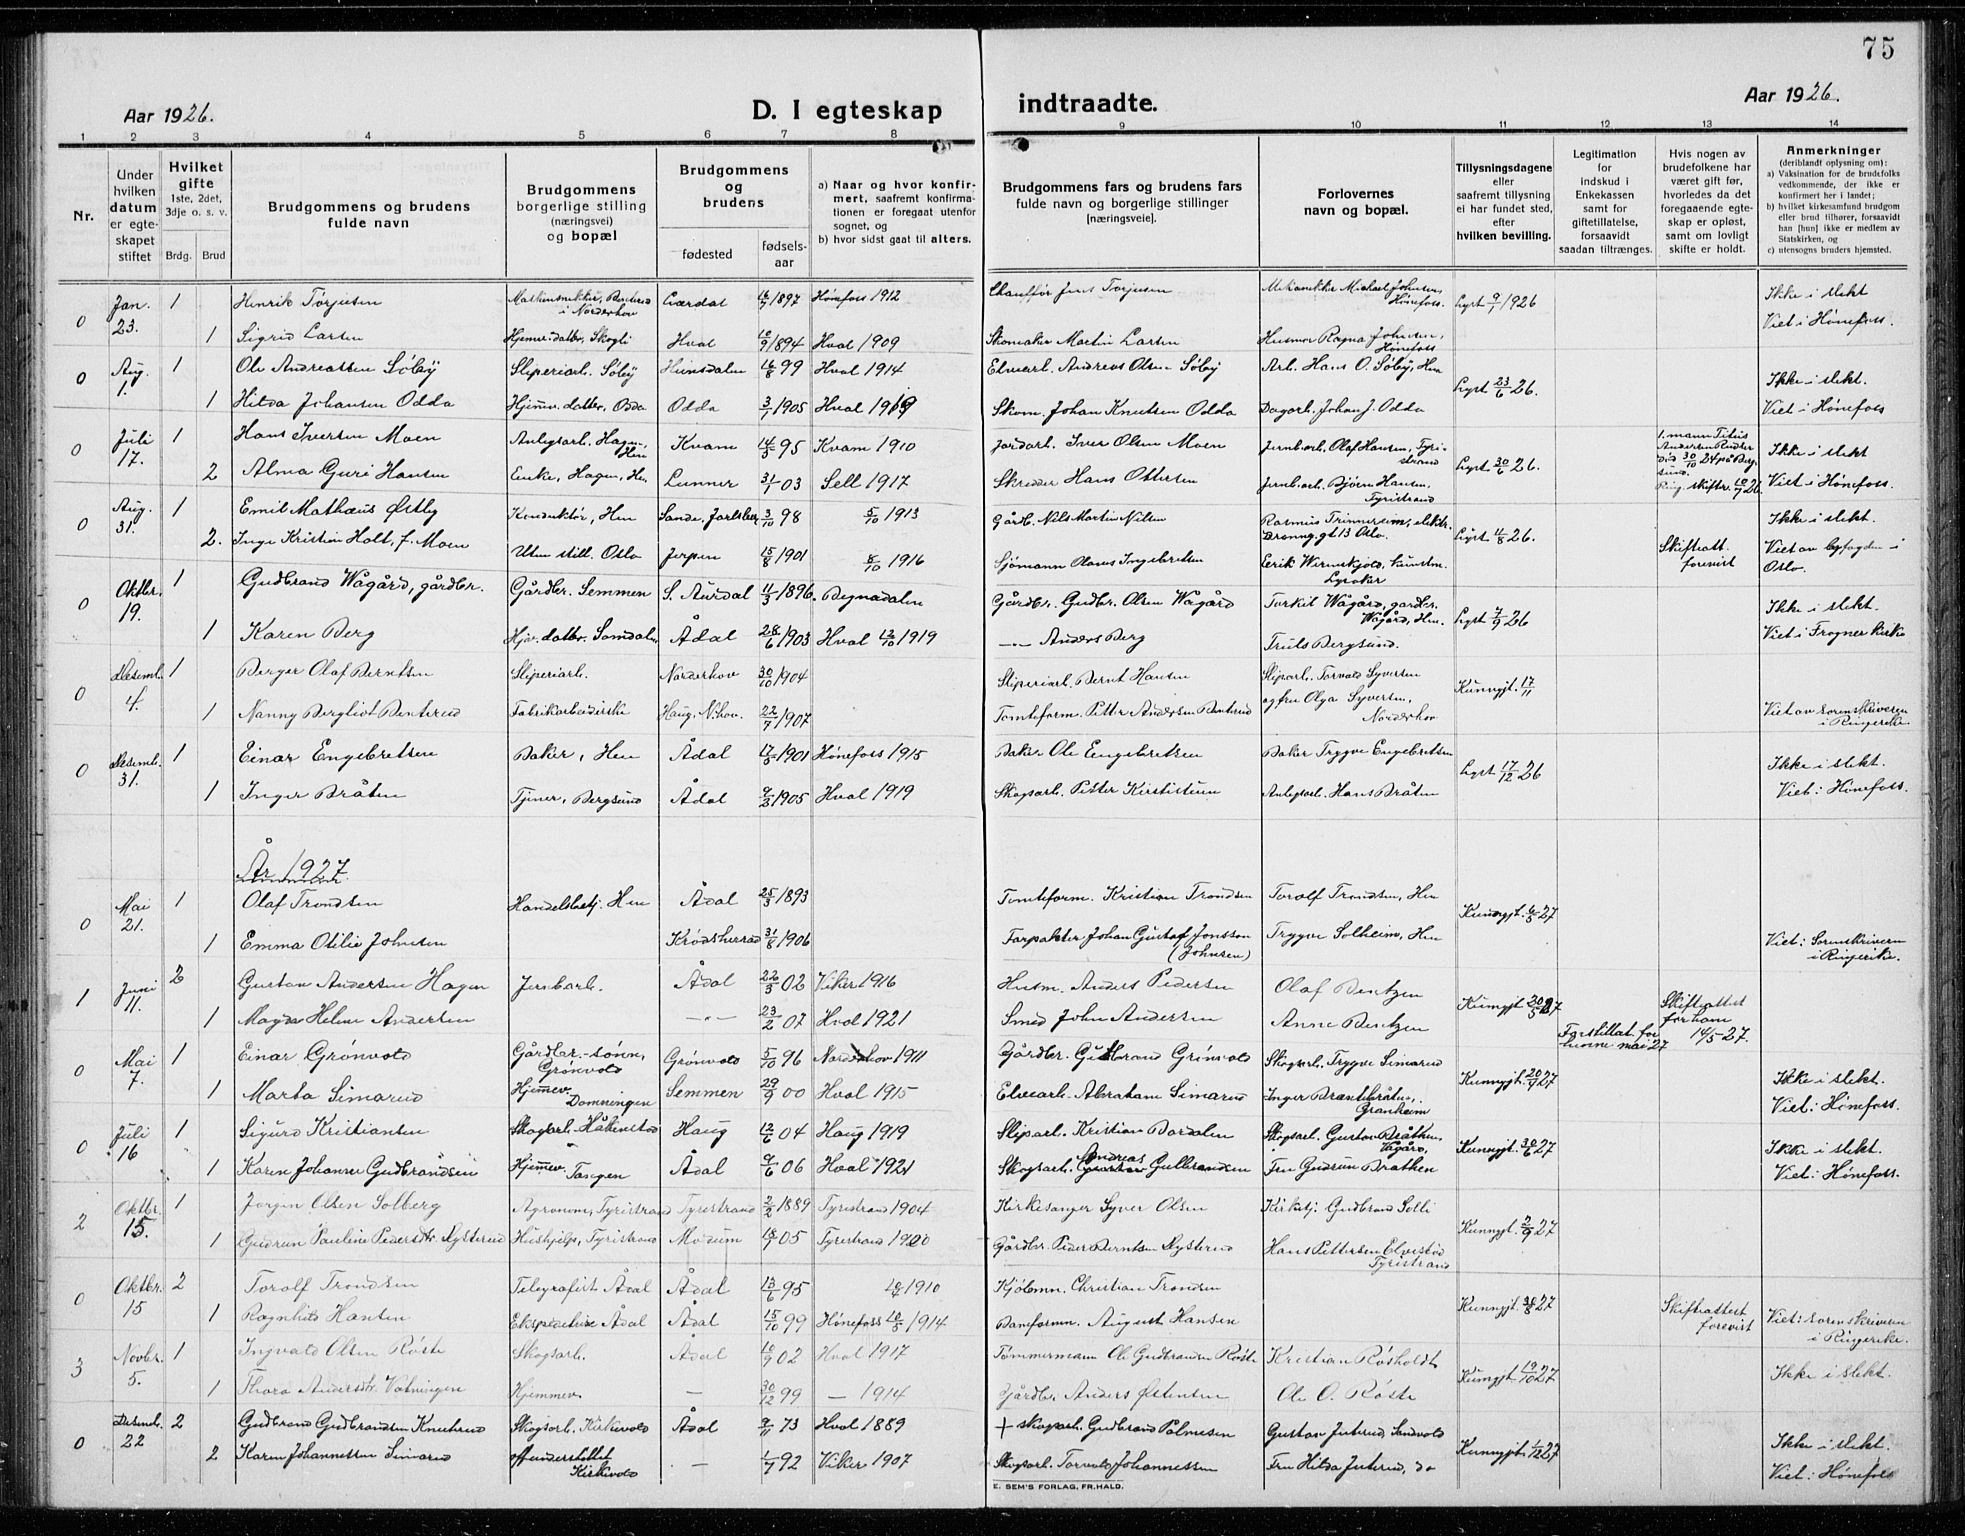 75
Aar 1926.
D. I egteskap indtraadte.
Aar 1926.
1 2 3 4 5 6 7 8 9 10 11 12 13 14
Nr.
Under hvilken datum er egteskapet stiftet
Hvilket gifte 1ste, 2det, 3dje o. s. v.
Brdg. Brud
Brudgommens og brudens fulde navn
Brudgommens borgerlige stilling (næringsvei) og bopæl
Brudgommens og brudens
fødested
fødselsaar
a) Naar og hvor konfirmert, saafremt konfirmationen er foregaat utenfor sognet, og
b) hvor sidst gaat til alters.
Brudgommens fars og brudens fars fulde navn og borgerlige stillinger [næringsveie].
Forlovernes navn og bopæl.
Tillysningsdagene eller saafremt tillysning ei har fundet sted, efter hvilken bevilling.
Legitimation for indskud i Enkekassen samt for giftetillatelse, forsaavidt saadan tiltrænges.
Hvis nogen av brudefolkene har været gift før, hvorledes da det foregaaende egteskap er opløst, samt om lovligt skifte er holdt.
Anmerkninger (deriblandt oplysning om):
a) Vaksination for de brudefolks vedkommende, der ikke er konfirmert her i landet;
b) hvilket kirkesamfund brudgom eller brud tilhører, forsaavidt han [hun] ikke er medlem av Statskirken, og
c) utensogns bruders hjemsted.
0 Jan. 23. 1 Henrik Torjusen i Norderhov 16/7 1897 Hønefoss 1912 Chauffør Jens Torjusen Michael Johnsen, Hønefoss. Lyst 9/1 1926 Ikke i slekt
1 Sigrid Larsen Hjemv. datter, Skogli Hval 10/9 1894 Hval 1909 Skomaker Martin Larsen Husmor Ragna Johnsen, Hønefoss Viet i Hønefoss.
0 Aug. 1. 1 Ole Andreassen Søby Sliperiarb. Søby Heensdalen 16/8 99 Hval 1914 Elvearb. Andreas Olsen Søby Arb. Hans O. Søby, Hen Lyst 23/6 26. Ikke i slekt.
1 Hilda Johansen Odda Hjemv. datter, Odda Odda 3/1 1905 Hval 1919 Skom. Johan Knutsen Odda Dagarb. Johan J. Odda Viet i Hønefoss
0 Juli 17. 1 Hans Iversen Moen Anlegsarb. Hagen, Hen Kvam 14/5 95 Kvam 1910 Jordarb. Iver Olsen Moen Jernb.arb. Olaf Hansen, Tyristrand Lyst 30/6 26. 1. mann Titus Andersen død 30/10 24 på Bergsund. Ring. skifter. 10/7 26 Ikke i slekt
2 Alma Guri Hansen Enke, Hagen, Hen Lunner 31/1 03 Sell 1917 Skredder Hans Ottersen Jernb.arb. Bjørn Hansen, Tyristrand Viet i Hønefoss.
0 Aug. 31. 1 Emil Mathæus Østby Konduktør, Hen Sande, Jarlsberg 3/10 98 5/10 1913 Gårdb. Nils Martin Nilsen Rasmus, elektr. Dronng. gt 13 Oslo. Lyst 4/8 26. Ikke i slekt.
2. Inga Kristin Holt, f. Moen Uten still. Oslo 15/8 1901 8/10 1916 Sjømann Olaus Ingebretsen Eerik Wernskjold, Lysaker Skifteatt. forevist Viet av byfogden i Oslo.
0 Oktbr. 19. 1 Gudbrand Wågård, gårdbr. Gårdbr. Semmen S. Aurdal 11/3 1896. Begnadalen Gårdbr. Gudbr. Olsen Wågård Torkil Wågård, gardbr. Wågård, Hen. Lyst 7/9 26 Ikke i slekt.
1 Karen Berg Hjv. datter. Somdalen Ådal 28/6 1903 Hval 12/10 1919 —"— Anders Berg Truls Bergsund. Viet i Frogner kirke
0 Desemb. 4. 1 Berger Olaf Berntsen Sliperiarb. Norderhov 30/10 1904 Sliperiarb. Bernt Hansen Sliparb. Torvald Syversen Kunngjt. 17/11
1 Nanny Bergliot Benterud Fabrikarbeiderske Haug, N.hov. 22/7 1907 Tomteform. Petter Andersen Benterud og fru Olga Syversen, Norderhov Viet av sorenskriveren i Ringerike
0 Desemb. 31. 1 Einar Engebretsen Baker, Hen Ådal 17/5 1901 Hønefoss 1915 Baker Ole Engebretsen Baker Trygve Engebretsen Lyst 17/12 26 Ikke i slekt.
1 Inger Bråten Tjener, Bergsund Ådal 9/3 1905 Hval 1919 Skogsarb. Petter Kirstistuen Anlegsarb. Hans Bråten Viet i Hønefoss.
År 1927
0 Mai 21. 1 Olaf Trondsen Handelsbetj. Hen Ådal 25/3 1893 Tomteform. Kristian Trondsen Torolf Trondsen, Hen Kunngjt. 6/5 27
1 Emma Otilie Johnsen Krødsherad 31/8 1906 Forpakter Johan Gustaf Jonsson (Johnsen) Trygve Solheim, Hen Viet: Sorenskriveren i Ringerike.
1 Juni 11. 2 Gustav Andersen Hagen Jernbarb. Ådal 22/3 02 Viker 1916 Husm. Anders Pedersen Olaf Bentzen Kunngjt. 20/5 27 Skifteattest for ham 14/5-27.
1 Magda Helene Andersen —"— 23/2 07 Hval 1921 Smed John Andersen Anne Bentzen Fastillat. for mai 27
0 Mai 7. 1 Einar Grønvold Gårdbr.-sønn, Grønvold Grønvold 5/10 96 Norderhov 1911 Gårdbr. Gudbrand Grønvold Skogsarb. Trygve Simarud Kunngjt. 20/4 27 Ikke i slekt.
1 Marta Simarud Hjemmev. Domningen Semmen 29/9 00 Hval 1915 Elvearb. Abraham Simarud Inger Brentebråten, Granheim Viet: Hønefoss.
0 Juli 16 1 Sigurd Kristiansen Skogsarb. Håkenstad Haug 12/6 04 Haug 1919 Sliparb. Kristian Dordalen Skogsarb. Gustav Bråthen, Vågård, Kunngjt. 30/6 27 Ikke i slekt.
1 Karen Johanne Gudbrandsen Hjemmev. Tangen Ådal 9/6 06 Hval 1921 Skogsarb. Andreas Gulbrandsen Fru Gudrun Bråthen Viet: Hønefoss.
2 Oktbr. 15. 1 Jørgen Olsen Solberg Agronom, Tyristrand Tyristrand 2/2 1889 Tyristrand 1904 Kirkesanger Syver Olsen Kirketj. Gudbrand Solli Kunngjt. 2/9 27
1 Gudrun Pauline Pedersdtr. Nysterud Hushjelp, Tyristrand Modum 18/7 05 Tyristrand 1920 Gårdbr. Peder Berntsen Nysterud Hans Pettersen Elvestad Tyristrand
0 Oktbr. 15 2 Torolf Trondsen Telegrafist Ådal Ådal 13/6 95 1910 Kjøbmn. Christian Trondsen Kunngjt. 30/8 27 Skifteattest forevist Viet: sorenskriveren i Ringerike.
1 Ragnhild Hansen Ekspeditrise Ådal Ådal 15/10 99 Hønefoss 10/5 1914 Baneformn. August Hansen
3 Novbr. 5. 1 Ingvald Olsen Røste Skogsarb. Ådal 10/9 02 Hval 1917 Tømmermann Ole Gudbrandsen Røste Kristian Røsholdt Kunngjt. 19/10 27 Ikke i slekt.
1 Thora Andersdtr. Vatningen Hjemmev. — 30/12 99 — 1914 Gårdbr. Anders Østensen Ole O. Røste
0 Desemb. 22 2 Gudbrand Gudbrandsen Knuterud Skogsarb. Kirkevold Ådal 9/11 73 Hval 1889 + skogsarb. Gudbrand Palmesen Gustav Juterud Sandvold Kunngjt. 1/12 27 Ikke i slekt.
2 Karen Johannessen Simarud off. understøttet Kirkevold — 1/7 92 Viker 1907 Skogsarb. Torvald Johannessen Fru Hilda Juterud, do Viet: Hønefoss
E. SEM'S FORLAG, FR.HALD.